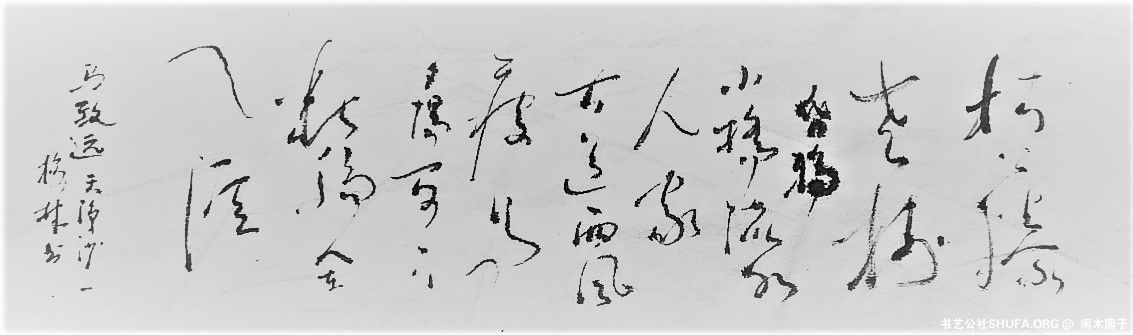 枯藤
老树
昏鸦
小桥流水
人家
古道西风
瘦马
夕阳西下
断肠人在
天涯
马致远天净沙一
格林书
书艺公社SHUFA.ORG @ 闲木园子